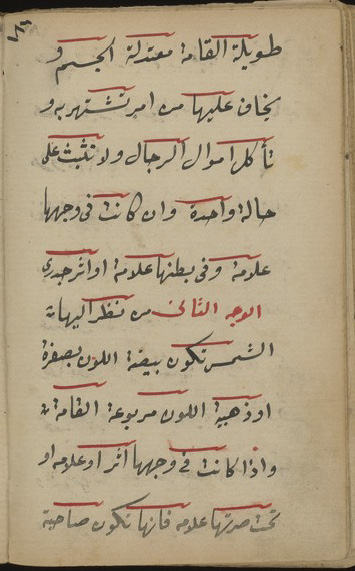 طويلة القامة معتدلة الجسم و
يخاف عليها من امر تشتهر به و
تأكل اموال الرجال ولا تثبت على
حالة واحدة وان كانت في وجهها
علامة وفي بطنها علامة او اثر جدري
الوجه الثاني من نظر اليها
الشمس تكون بيضة اللون بصفرة
او ذهبية اللون مربوعة القامة
واذا كانت في وجهها اثر او علامه او
تحت صرتها علامه فانها تكون صاحبة